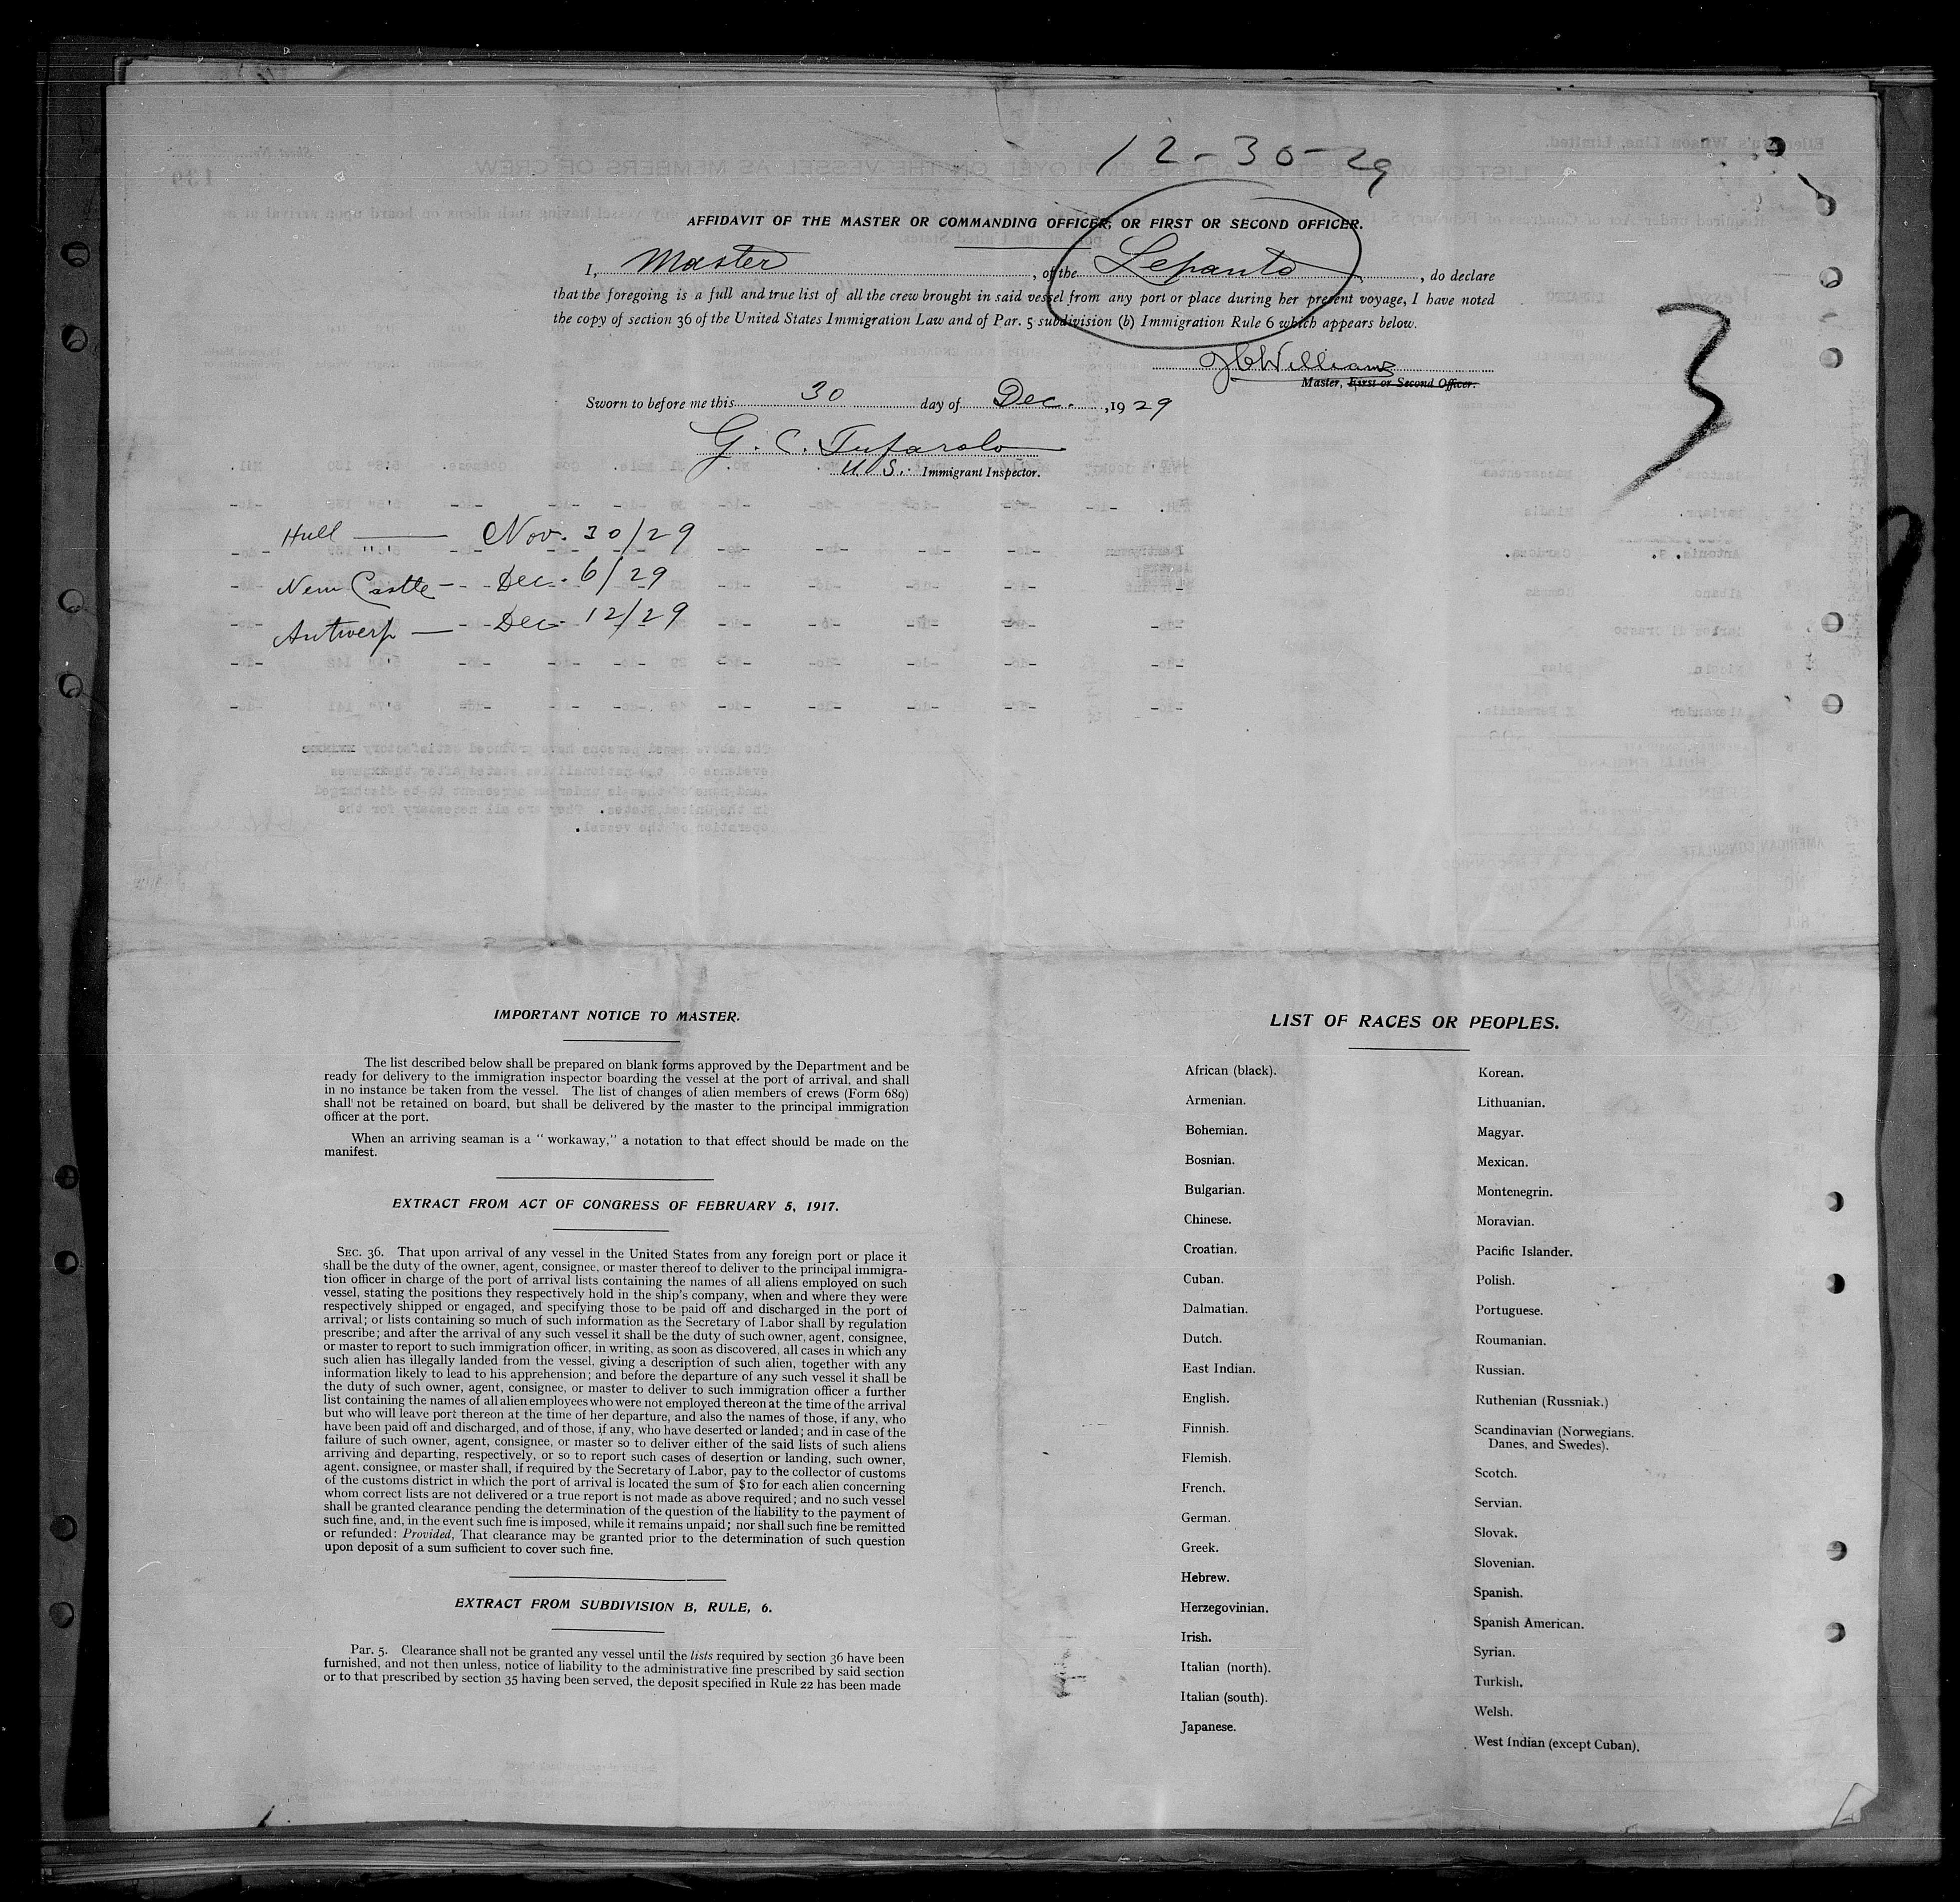 12-30-29
AFFIDAVIT OF THE MASTER OR COMMANDING OFFICER, OR FIRST OR SECOND OFFICER.
I, Master, of the Lepanto, do declare
that the foregoing is a full and true list of all the crew brought in said vessel from any port or place during her present voyage, I have noted
the copy of section 36 of the United States Immigration Law and of Par. 5 subdivision (b) Immigration Rule 6 which appears below.
3
Williams
Master, First or Second Officer.
Sworn to before me this 30 day of Dec. , 1929
G. C. Tufarolo
U.S. Immigrant Inspector.
Hull — Nov. 30/29
New Castle — Dec. 6/29
Antwerp — Dec. 12/29
IMPORTANT NOTICE TO MASTER.
The list described below shall be prepared on blank forms approved by the Department and be
ready for delivery to the immigration inspector boarding the vessel at the port of arrival, and shall
in no instance be taken from the vessel. The list of changes of alien members of crews (Form 689)
shall not be retained on board, but shall be delivered by the master to the principal immigration
officer at the port.
When an arriving seaman is a "workaway," a notation to that effect should be made on the
manifest.
EXTRACT FROM ACT OF CONGRESS OF FEBRUARY 5, 1917.
SEC. 36. That upon arrival of any vessel in the United States from any foreign port or place it
shall be the duty of the owner, agent, consignee, or master thereof to deliver to the principal immigra-
tion officer in charge of the port of arrival lists containing the names of all aliens employed on such
vessel, stating the positions they respectively hold in the ship's company, when and where they were
respectively shipped or engaged, and specifying those to be paid off and discharged in the port of
arrival; or lists containing so much of such information as the Secretary of Labor shall by regulation
prescribe; and after the arrival of any such vessel it shall be the duty of such owner, agent, consignee,
or master to report to such immigration officer, in writing, as soon as discovered, all cases in which any
such alien has illegally landed from the vessel, giving a description of such alien, together with any
information likely to lead to his apprehension; and before the departure of any such vessel it shall be
the duty of such owner, agent, consignee, or master to deliver to such immigration officer a further
list containing the names of all alien employees who were not employed thereon at the time of the arrival
but who will leave port thereon at the time of her departure, and also the names of those, if any, who
have been paid off and discharged, and of those, if any, who have deserted or landed; and in case of the
failure of such owner, agent, consignee, or master so to deliver either of the said lists of such aliens
arriving and departing, respectively, or so to report such cases of desertion or landing, such owner,
agent, consignee, or master shall, if required by the Secretary of Labor, pay to the collector of customs
of the customs district in which the port of arrival is located the sum of $10 for each alien concerning
whom correct lists are not delivered or a true report is not made as above required; and no such vessel
shall be granted clearance pending the determination of the question of the liability to the payment of
such fine, and, in the event such fine is imposed, while it remains unpaid; nor shall such fine be remitted
or refunded: Provided, That clearance may be granted prior to the determination of such question
upon deposit of a sum sufficient to cover such fine.
EXTRACT FROM SUBDIVISION B, RULE, 6.
Par. 5. Clearance shall not be granted any vessel until the lists required by section 36 have been
furnished, and not then unless, notice of liability to the administrative fine prescribed by said section
or to that prescribed by section 35 having been served, the deposit specified in Rule 22 has been made
LIST OF RACES OR PEOPLES.
African (black).
Armenian.
Bohemian.
Bosnian.
Bulgarian.
Chinese.
Croatian.
Cuban.
Dalmatian.
Dutch.
East Indian.
English.
Finnish.
Flemish.
French.
German.
Greek.
Hebrew.
Herzegovinian.
Irish.
Italian (north).
Italian (south).
Japanese.
Korean.
Lithuanian.
Magyar.
Mexican.
Montenegrin.
Moravian.
Pacific Islander.
Polish.
Portuguese.
Roumanian.
Russian.
Ruthenian (Russniak.)
Scandinavian (Norwegians.
Danes, and Swedes).
Scotch.
Servian.
Slovak.
Slovenian.
Spanish.
Spanish American.
Syrian.
Turkish.
Welsh.
West Indian (except Cuban).